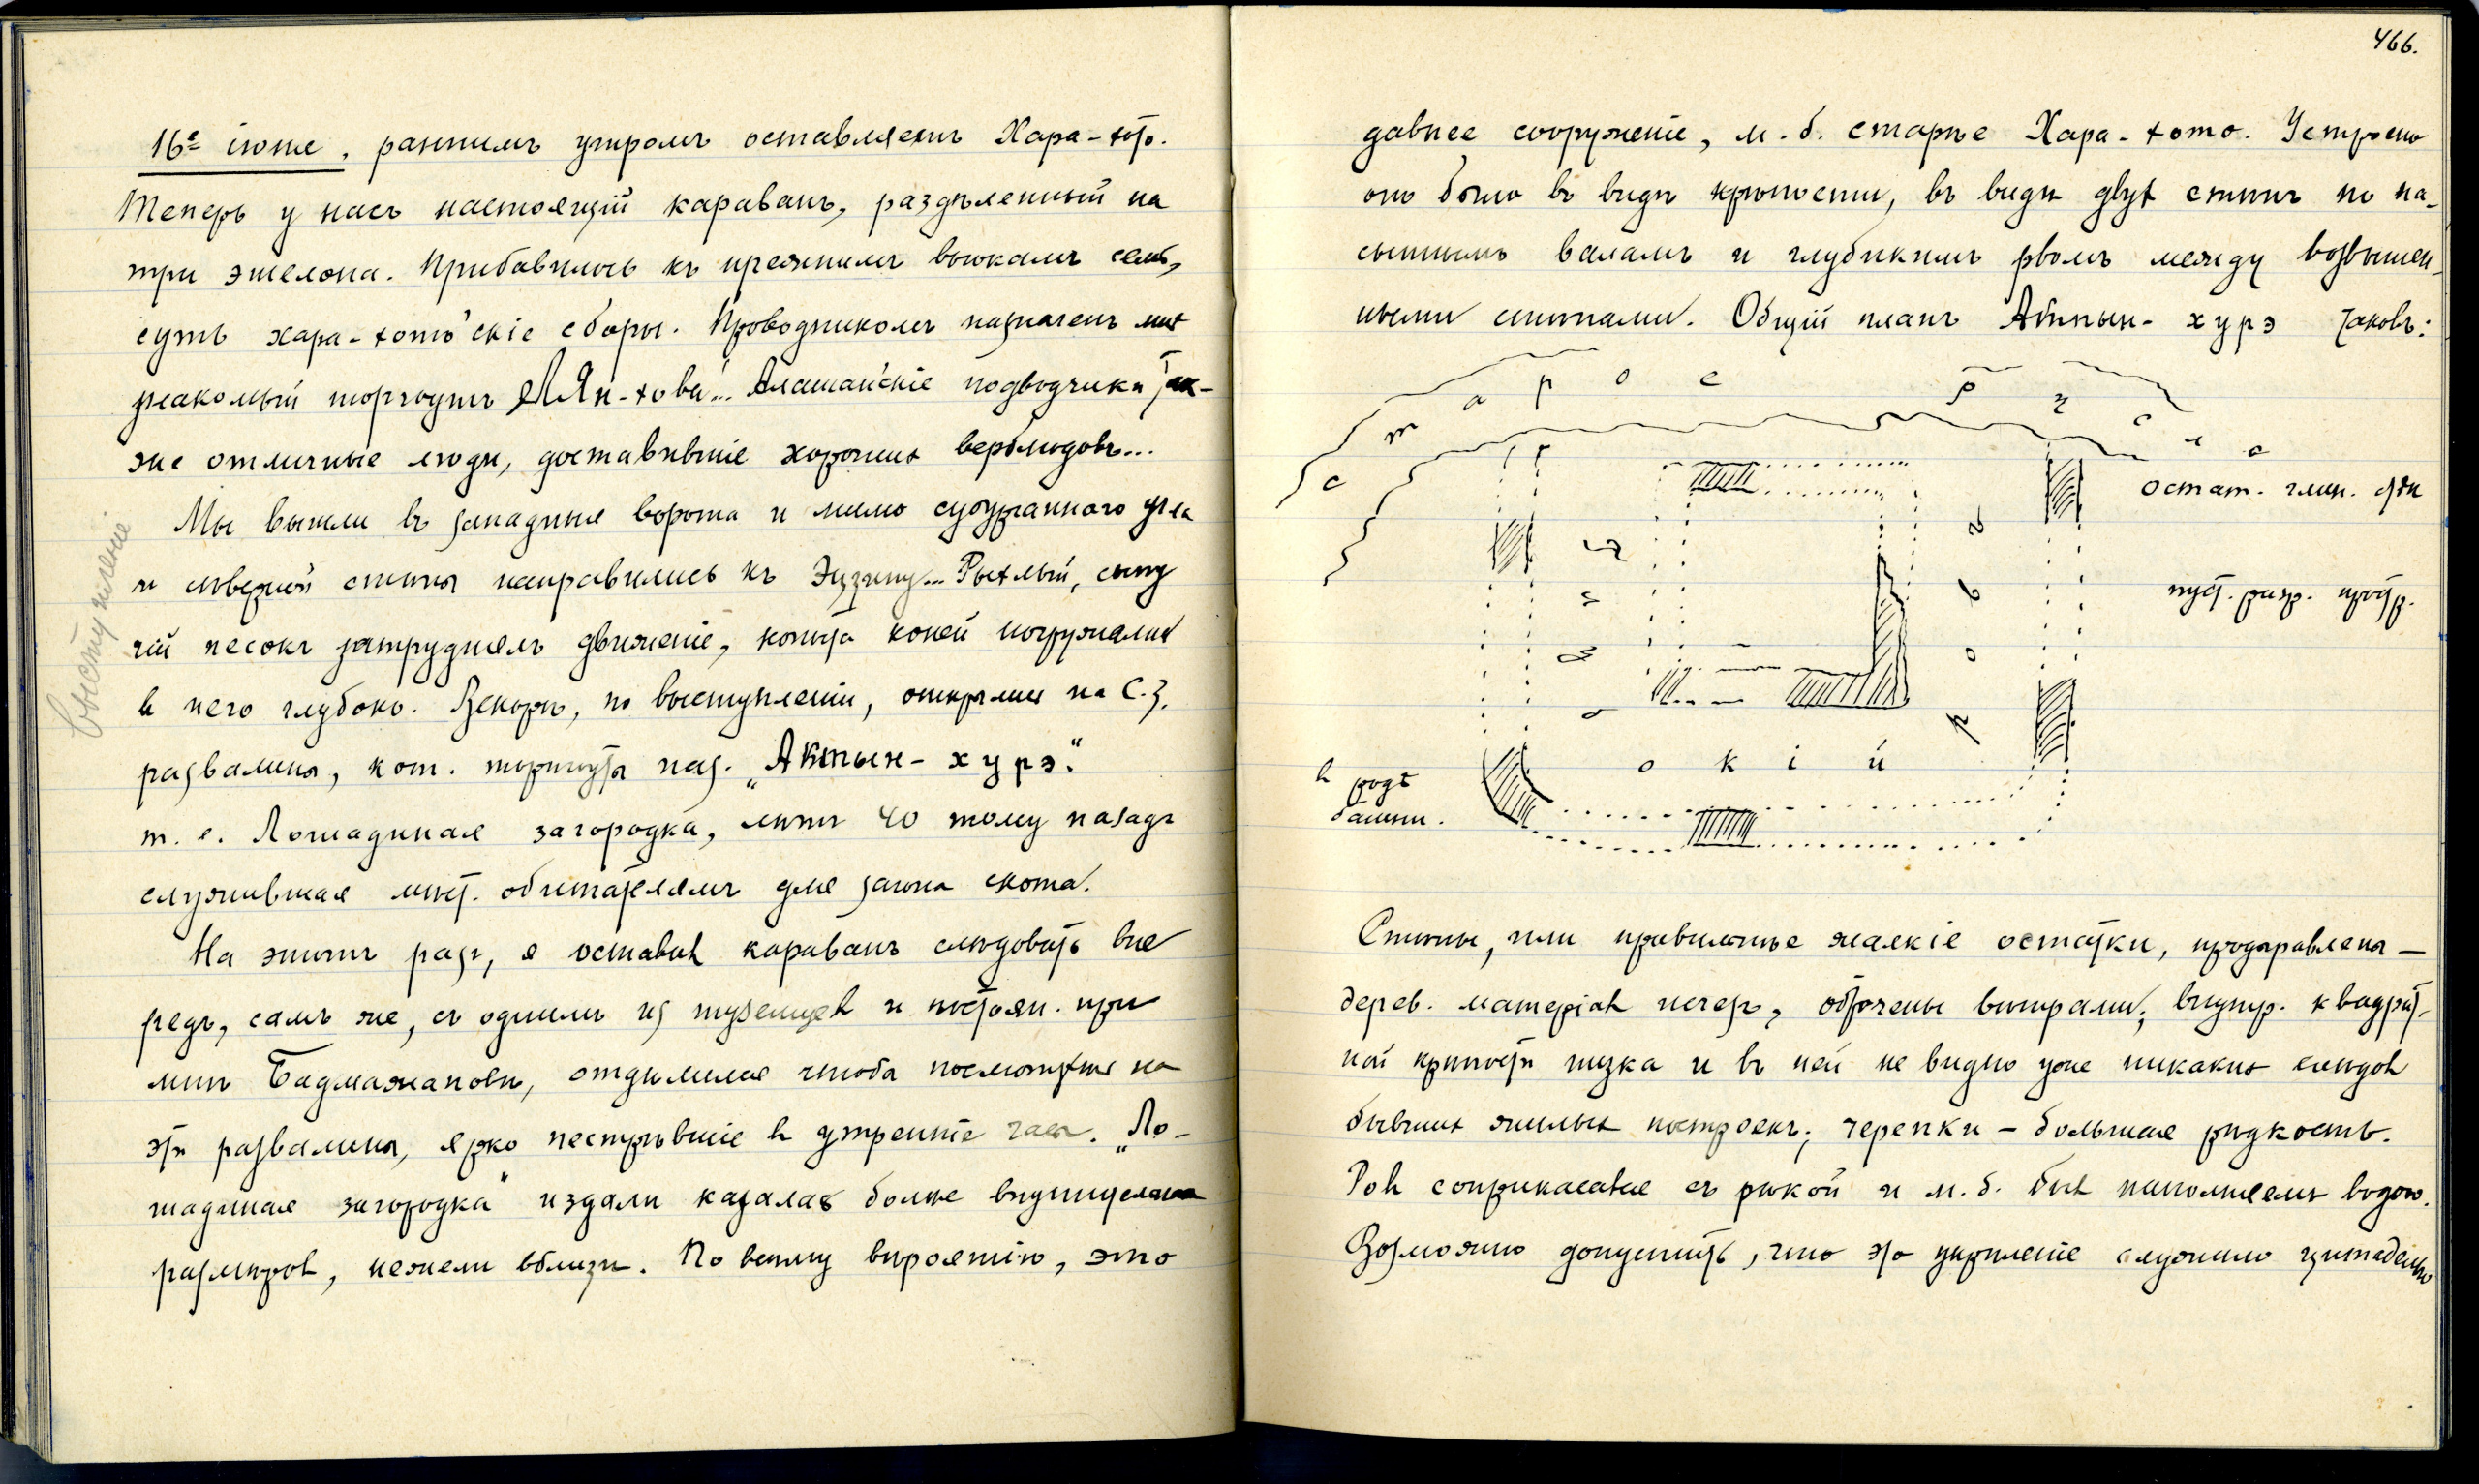 16го іюня, раннимъ утромъ оставляемъ Хара-хото.
Теперь у насъ настоящій караванъ, раздѣленный на
три эшелона. Прибавилось къ прежнимъ вьюкамъ семь,
суть хара-хото'скіе сборы. Проводникомъ назначенъ мнѣ
знакомый торгоутъ Лян-хова... Алашанскіе подводчики так-
же отличные люди, доставившіе хорошихъ верблюдовъ...
Мы вышли въ западныя ворота и мимо субурганнаго угла
и сѣверной стѣны направились къ Эцзину... Рыхлый, сыпу
чій песокъ затруднялъ движеніе, копыта коней погружались
в него глубоко. Вскорѣ, по выступленіи, открылись на С.З.
развалины, кот. торгоуты наз. „Актын-хурэ".
т. е. Лошадиная загородка, лѣтъ 40 тому назадъ
служившая мѣст. обитателямъ для загона скота.
На этотъ разъ, я оставивъ караванъ слѣдовать впе
редъ, самъ же, съ однимъ из туземцевъ и постоян. при
мнѣ Бадмажаповъ, отдѣлился чтобы посмотрѣть на
эти развалины, ярко пестрѣвшіе в утренніе часы. „Ло-
шадиная загородка" издали казалась болѣе внушительна
размѣровъ, нежели вблизи. По всему вѣроятію, это
выступленіе
466.
давнее сооруженіе, м.б. старѣе Хара-хото. Устроено
оно было въ видѣ крѣпости, въ видѣ двухъ стѣнъ по на-
сыпнымъ валамъ и глубокимъ рвомъ между возвышен-
ными стѣнами. Общій планъ Актын-хурэ таковъ:
с т а р о е р у с л о
остат. глин. стѣн
пуст. разр. простр.
р о в
г л у б
о к і й
в родѣ
башни.
Стѣны, или правильнѣе жалкіе остатки, продыравлены —
дерев. матеріалъ исчезъ, обточены вѣтрами; внутр. квадрат-
ной крѣпости низка и въ ней не видно уже никакихъ слѣдовъ
бывшихъ жилыхъ построекъ; черепки - большая рѣдкость.
Ровъ соприкасался съ рѣкой и м.б. былъ наполняемъ водою.
Возможно допустить, что это укрпленіе служило цитаделью